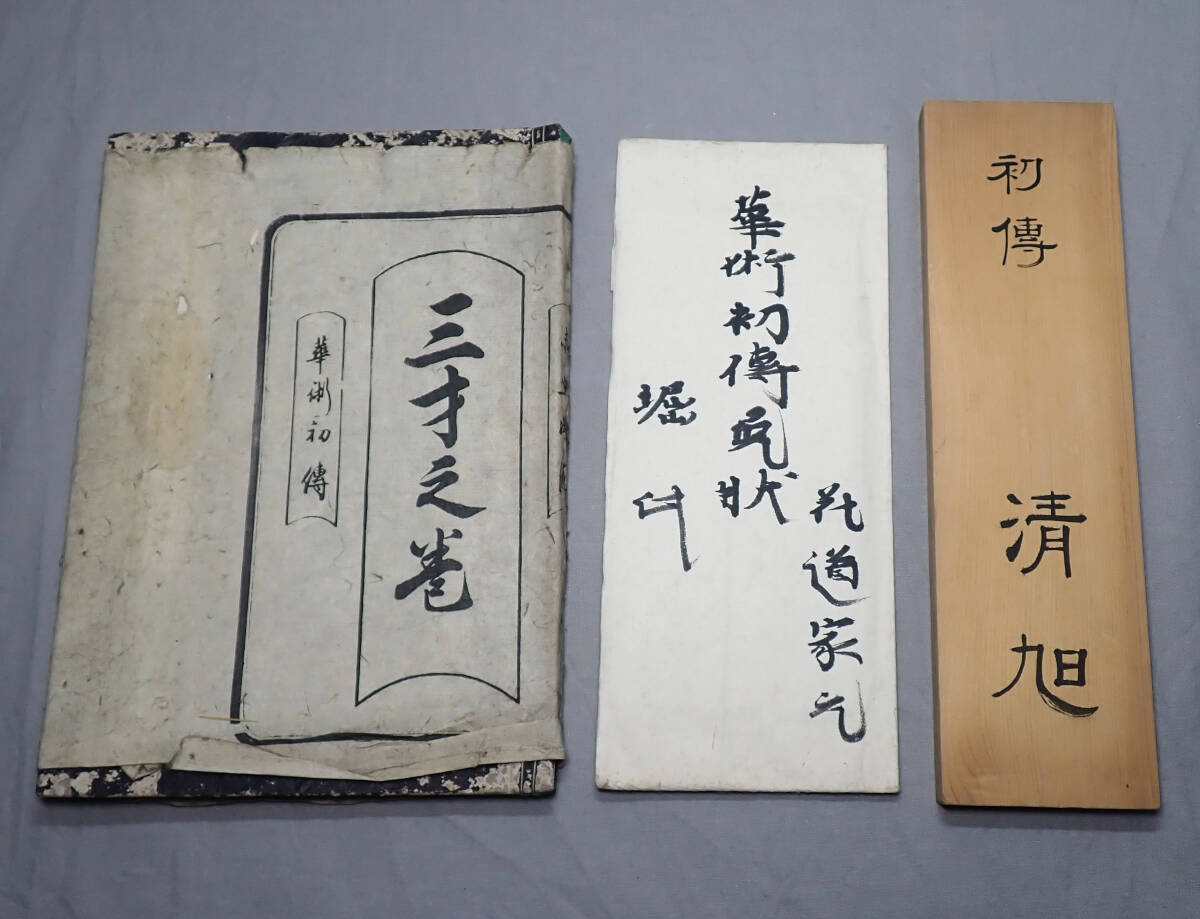 三才之巻
華術初傳
華術初傳免状
花道家元
堀 付
初傳
清旭